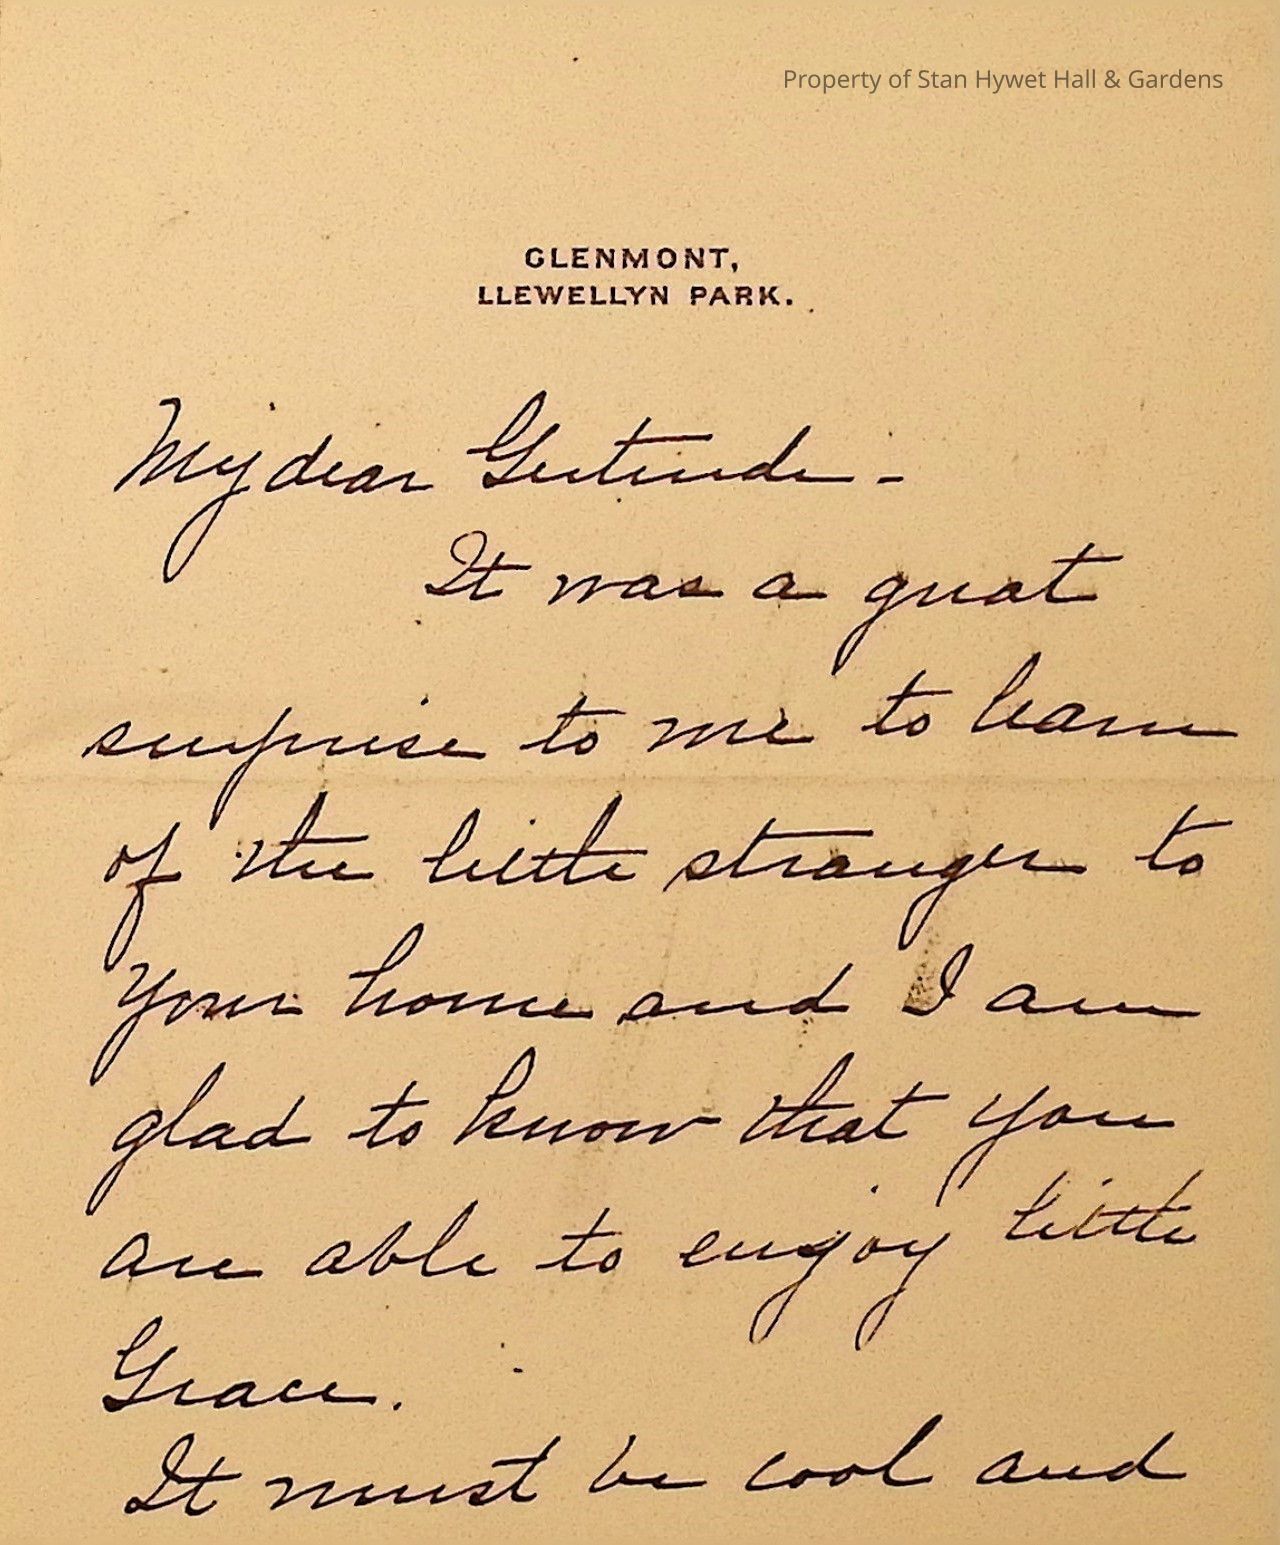 Property of Stan Hywet Hall & Gardens
GLENMONT,
LLEWELLYN PARK.
My dear Gertrude -
It was a great
surprise to me to learn
of the little stranger to
your home and I am
glad to know that you
are able to enjoy little
Grace.
It must be cool and